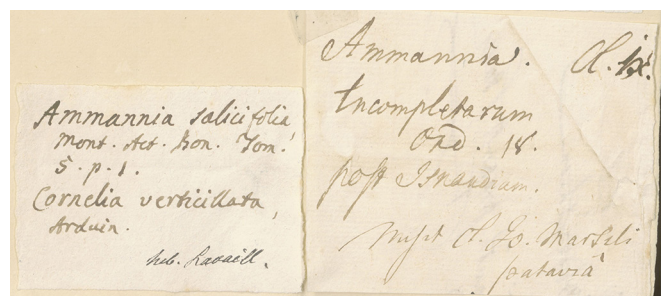 Ammannia salicifolia
Mont. Act. bon. Tom.
5. p. 1.
Cornelia verticillata,
Arduin.
heb. Lavaill.
Ammannia. Cl. IX.
Incompletarum
Ord. 18.
post Isnardiam.
Misit Cl. Jo. Marsili
patavia